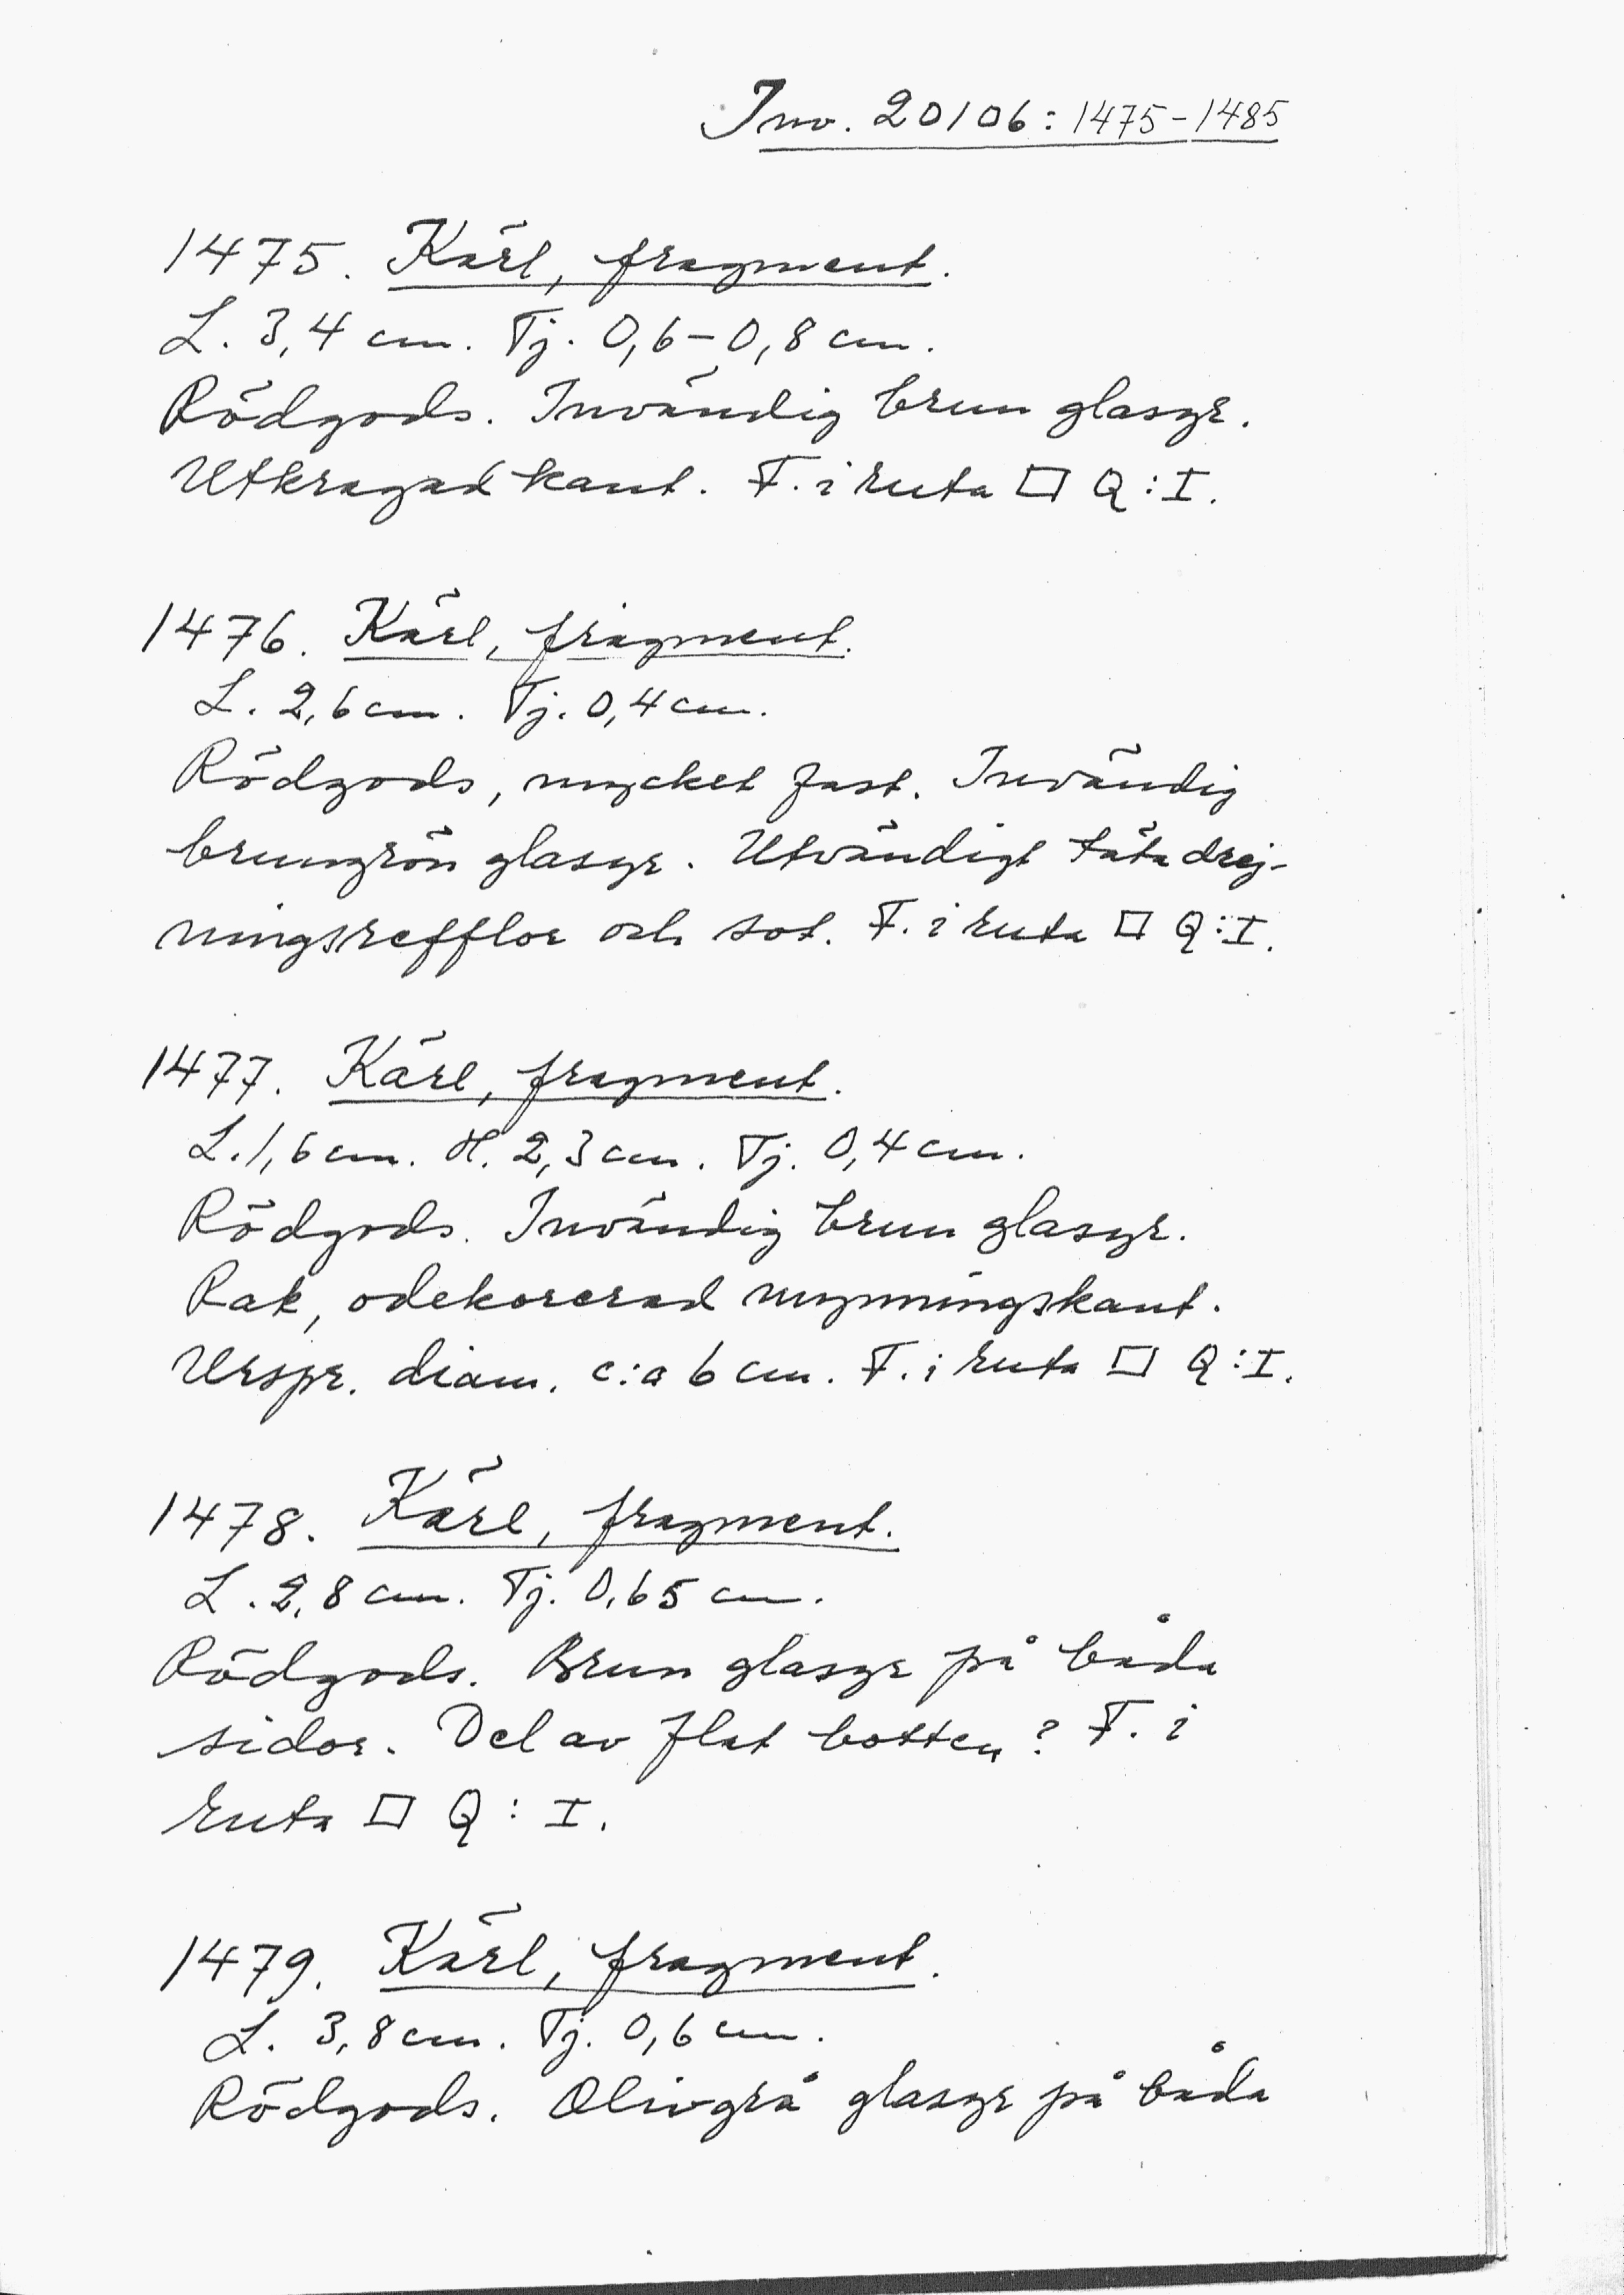 Inv. 20106: 1475-1485
1475. Kärl, fragment.
L. 3,4 cm. Tj. 0,6-0,8 cm.
Rödgods. Invändig brun glasyr.
Utkragad kant. F. i ruta □ Q:I.
1476. Kärl, fragment.
L. 2,6 cm. Tj. 0,4 cm.
Rödgods, mycket fast. Invändig
brungrön glasyr. Utvändigt täta drej-
ningsrefflor och sot. F. i ruta □ Q:I.
1477. Kärl, fragment.
L. 1,6 cm. H. 2,3 cm. Tj. 0,4 cm.
Rödgods. Invändig brun glasyr.
Rak, odekorerad mynningskant.
Urspr. diam. c:a 6 cm. F. i ruta □ Q:I.
1478. Kärl, fragment.
L. 2,8 cm. Tj. 0,65 cm.
Rödgods. Brun glasyr på båda
sidor. Del av flat botten? F. i
ruta □ Q: I.
1479. Kärl, fragment.
L. 3,8 cm. Tj. 0,6 cm.
Rödgods. Olivgrå glasyr på båda